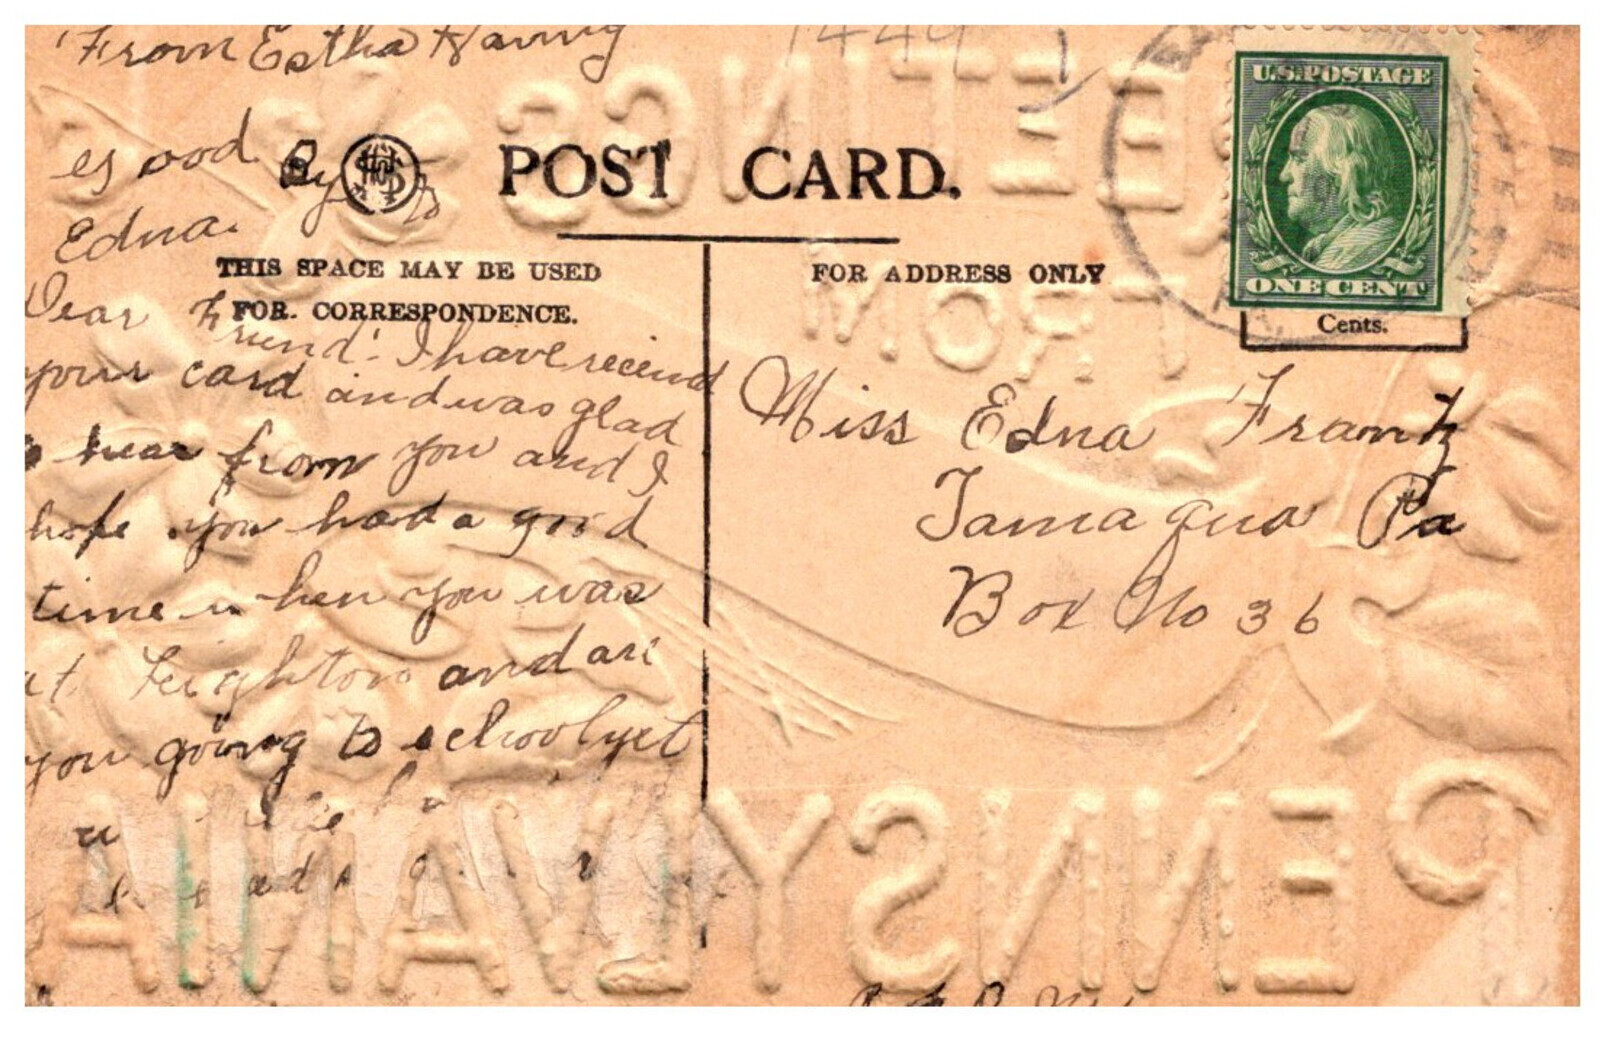 From Estha
Good By to
Edna.
POST CARD.
THIS SPACE MAY BE USED
FOR CORRESPONDENCE.
FOR ADDRESS ONLY
U.S. POSTAGE
ONE CENT
Cents.
Dear Friend: I have recieud
your card and was glad
to hear from you and I
hope you had a good
time when you was
at Leighton and are
you going to school yet
Miss Edna Frantz
Tamaqua Pa
Box No 36
GREETINGS
FROM
PENNSYLVANIA